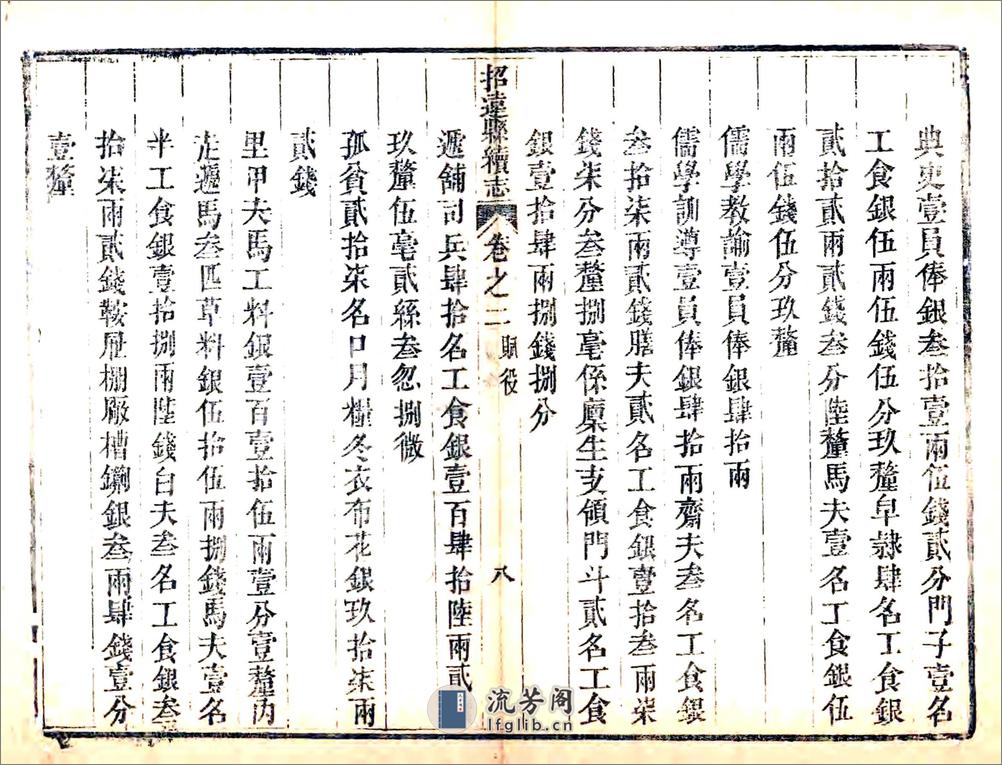 典吏壹員俸銀叁拾壹兩伍錢貳分門子壹名
工食銀伍兩伍錢伍分玖釐皁隸肆名工食銀
貳拾貳兩貳錢叁分陸釐馬夫壹名工食銀伍
兩伍錢伍分玖釐
儒學教諭壹員俸銀肆拾兩
儒學訓導壹員俸銀肆拾兩齋夫叁名工食銀
叁拾柒兩貳錢膳夫貳名工食銀壹拾叁兩柒
錢柒分叁釐捌毫係廩生支領門斗貳名工食
銀壹拾肆兩捌錢捌分
招遠縣續志 卷之二 賦役 八
遞舖司兵肆拾名工食銀壹百肆拾陸兩貳
玖釐伍毫貳絲叁忽捌微
孤貧貳拾柒名口月糧冬衣布花銀玖拾柒兩
貳錢
里甲夫馬工料銀壹百壹拾伍兩壹分壹釐內
走遞馬叁匹草料銀伍拾伍兩捌錢馬夫壹名
半工食銀壹拾捌兩陸錢白夫叁名工食銀叁
拾柒兩貳錢鞍屉棚廠槽鍘銀叁兩肆錢壹分
壹釐
流芳阁
lfglib.cn